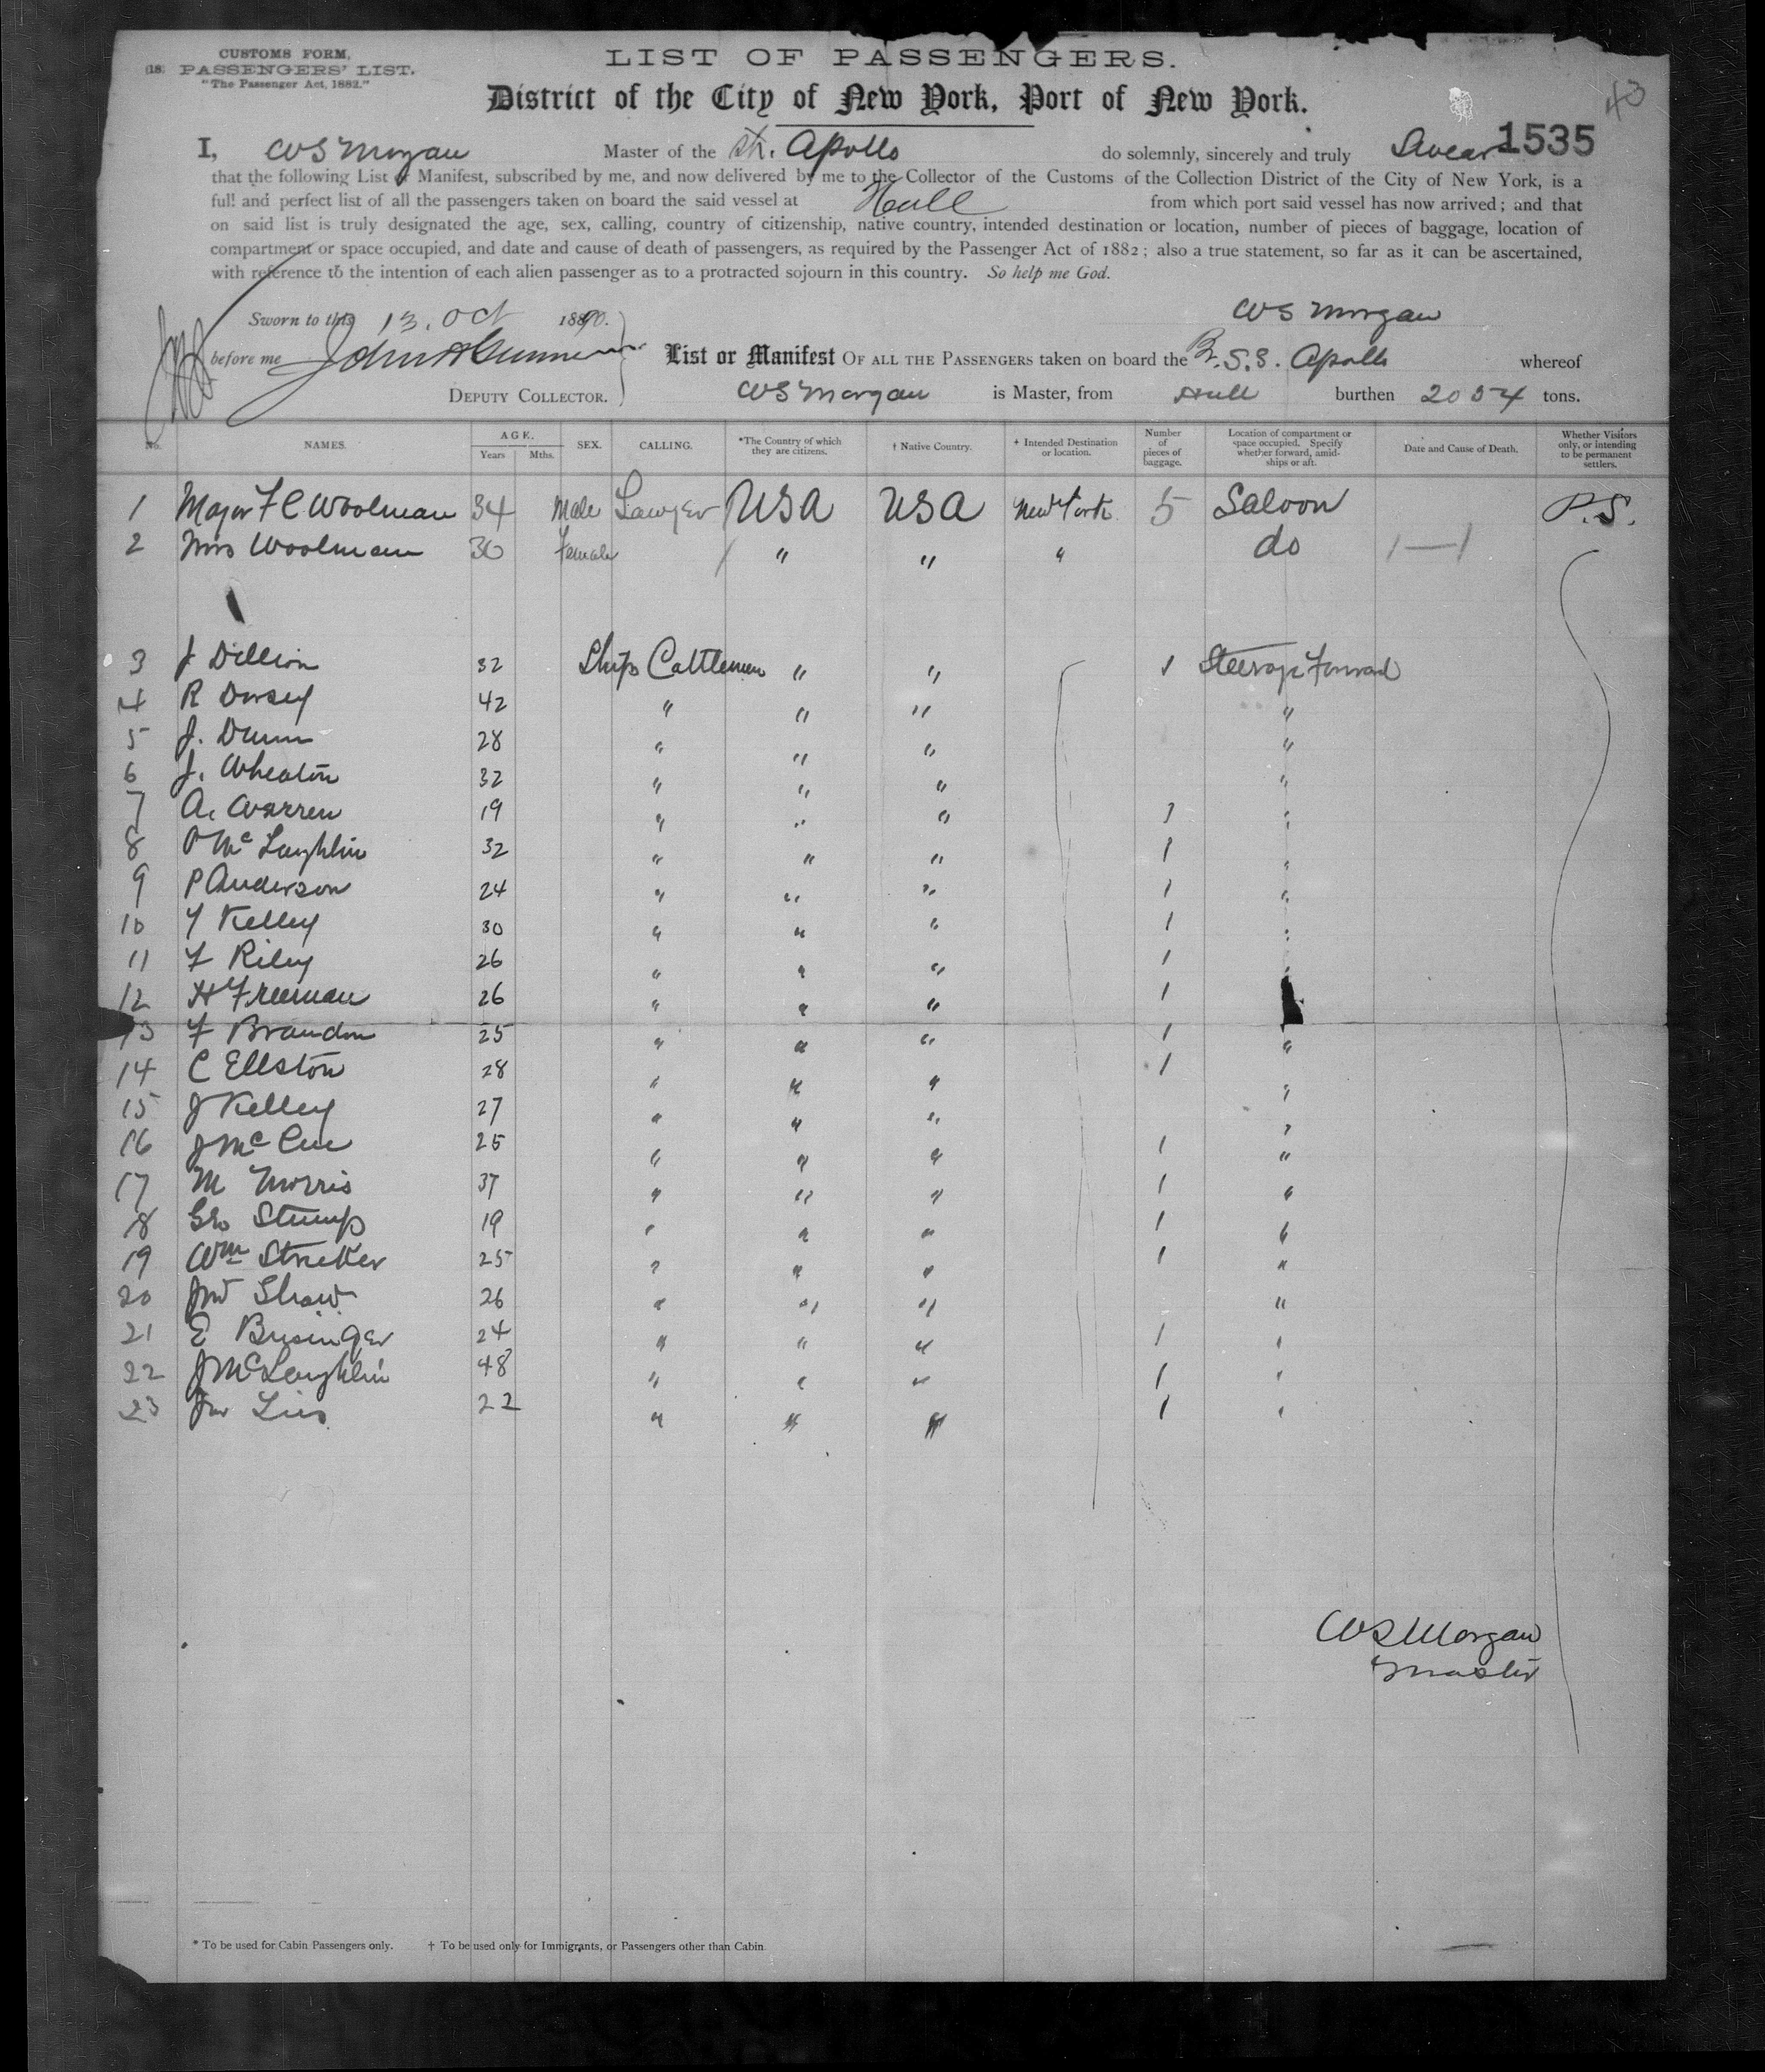 CUSTOMS FORM,
(18) PASSENGERS' LIST.
"The Passenger Act, 1882."
LIST OF PASSENGERS.
District of the City of New York, Port of New York.
43
1535
I, WS Morgan Master of the Str. Apollo do solemnly, sincerely and truly Swear
that the following List or Manifest, subscribed by me, and now delivered by me to the Collector of the Customs of the Collection District of the City of New York, is a
full and perfect list of all the passengers taken on board the said vessel at Hull from which port said vessel has now arrived; and that
on said list is truly designated the age, sex, calling, country of citizenship, native country, intended destination or location, number of pieces of baggage, location of
compartment or space occupied, and date and cause of death of passengers, as required by the Passenger Act of 1882; also a true statement, so far as it can be ascertained,
with reference to the intention of each alien passenger as to a protracted sojourn in this country. So help me God.
WS Morgan
Sworn to this 13. Oct 1890.
before me
DEPUTY COLLECTOR.
List or Manifest OF ALL THE PASSENGERS taken on board the Br. S.S. Apollo whereof
WS Morgan is Master, from Hull burthen 2054 tons.
No. NAMES. AGE. Years Mths. SEX. CALLING. *The Country of which they are citizens. † Native Country. † Intended Destination or location. Number of pieces of baggage. Location of compartment or space occupied. Specify whether forward, amidships or aft. Date and Cause of Death. Whether Visitors only, or intending to be permanent settlers.
1 Major F C Woolman 34 Male Lawyer USA USA New York 5 Saloon P.S.
2 Mrs Woolman 30 Female / " " " do 1—1
3 J Dillion 32 Ships Cattlemen " " 1 Steerage Forward
4 R Dorsey 42 " " " "
5 J. Dunn 28 " " " "
6 J. Wheaton 32 " " " "
7 A. Warren 19 " " " 1 "
8 P McLaughlin 32 " " " 1 "
9 P Anderson 24 " " " 1 "
10 T Kelley 30 " " " 1 "
11 F Riley 26 " " " 1 "
12 H Freeman 26 " " " 1
13 F Brandon 25 " " " 1 "
14 C Ellston 28 " " " 1 "
15 J Kelley 27 " " " "
16 J McCue 25 " " " 1 "
17 M Morris 37 " " " 1 "
18 Geo Stump 19 " " " 1 "
19 Wm Striker 25 " " " 1 "
20 Jno Shaw 26 " " " "
21 E Businger 24 " " " 1 "
22 J McLaughlin 48 " " " 1 "
23 22 " " " 1 "
WS Morgan
Master
* To be used for Cabin Passengers only. † To be used only for Immigrants, or Passengers other than Cabin.